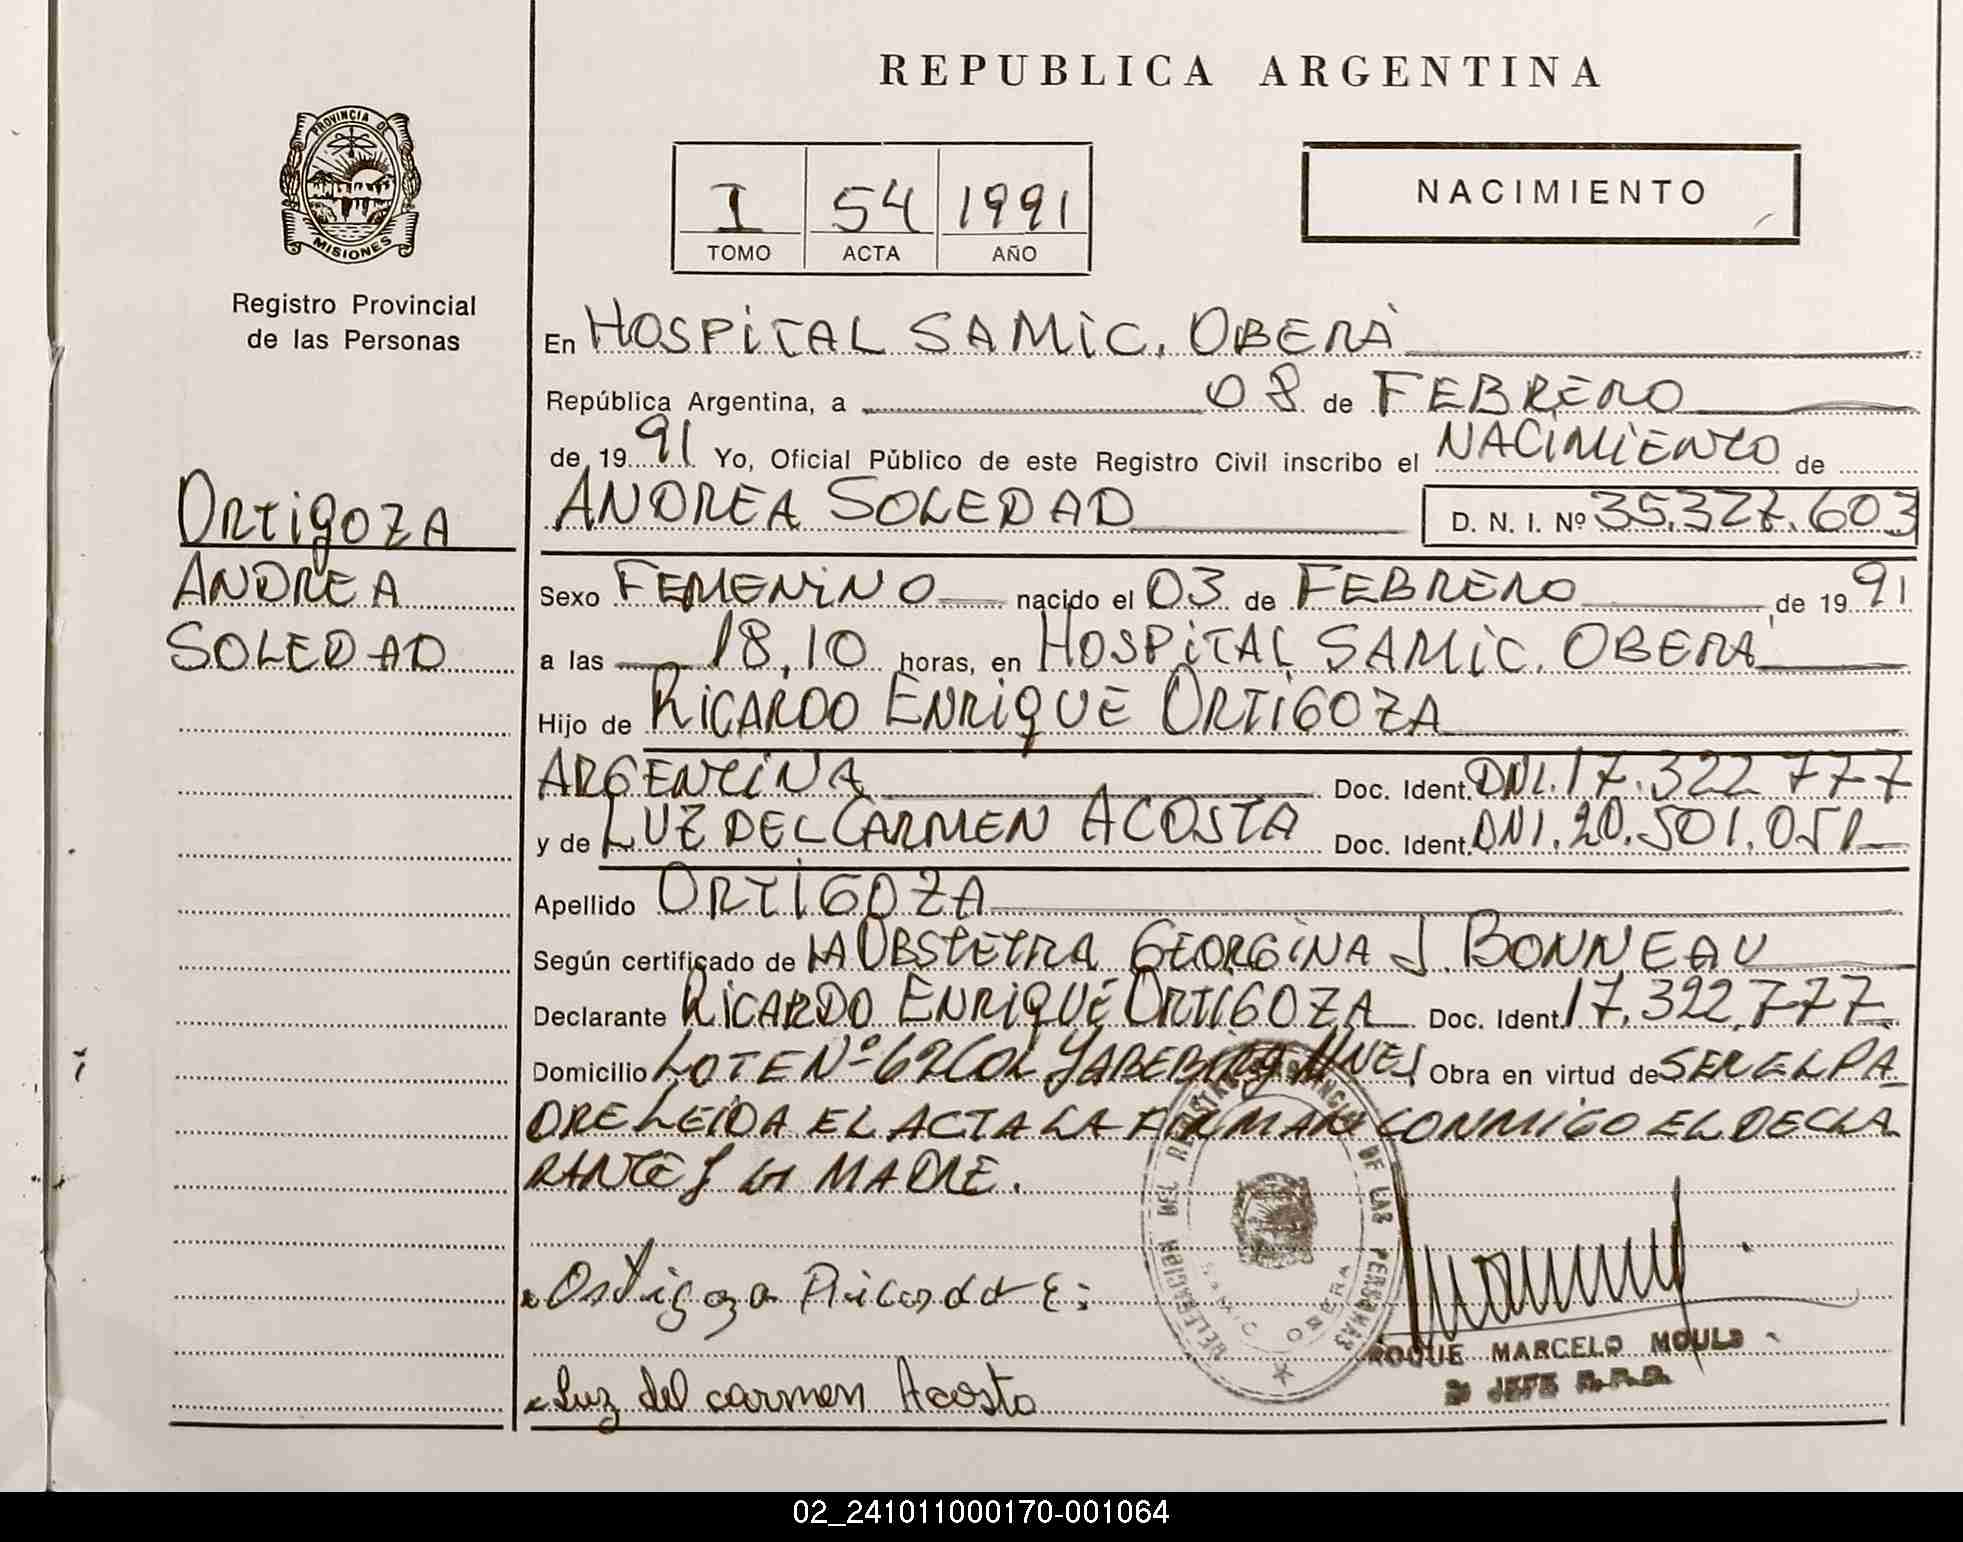 REPUBLICA ARGENTINA
PROVINCIA DE
MISIONES
Registro Provincial
de las Personas
I 54 1991
TOMO ACTA AÑO
NACIMIENTO
En HOSPITAL SAMIC. OBERÁ
República Argentina, a 08 de FEBRERO
de 1991 Yo, Oficial Público de este Registro Civil inscribo el NACIMIENTO de
ANDREA SOLEDAD D. N. I. Nº 35.327.603
ORTIGOZA
ANDREA
SOLEDAD
Sexo FEMENINO nacido el 03 de FEBRERO de 1991
a las 18,10 horas, en HOSPITAL SAMIC. OBERÁ
Hijo de RICARDO ENRIQUE ORTIGOZA
ARGENTINA Doc. Ident. DNI. 17.322 777
y de LUZ DEL CARMEN ACOSTA Doc. Ident. DNI. 20.501.051
Apellido ORTIGOZA
Según certificado de LA OBSTETRA GEORGINA J. BONNEAU
Declarante RICARDO ENRIQUE ORTIGOZA Doc. Ident. 17.322.777
Domicilio LOTE Nº 62 COL YABEBIRY MNES Obra en virtud de SER EL PA
DRE LEIDA EL ACTA LA FIRMAN CONMIGO EL DECLA
RANTE Y LA MADRE.
DELEGACION DEL REGISTRO PROVINCIAL DE LAS PERSONAS
SAMIC OBERA
Ortigoza Ricardo E.
ROQUE MARCELO MOULD
JEFE R.P.P.
Luz del carmen Acosta
02_241011000170-001064